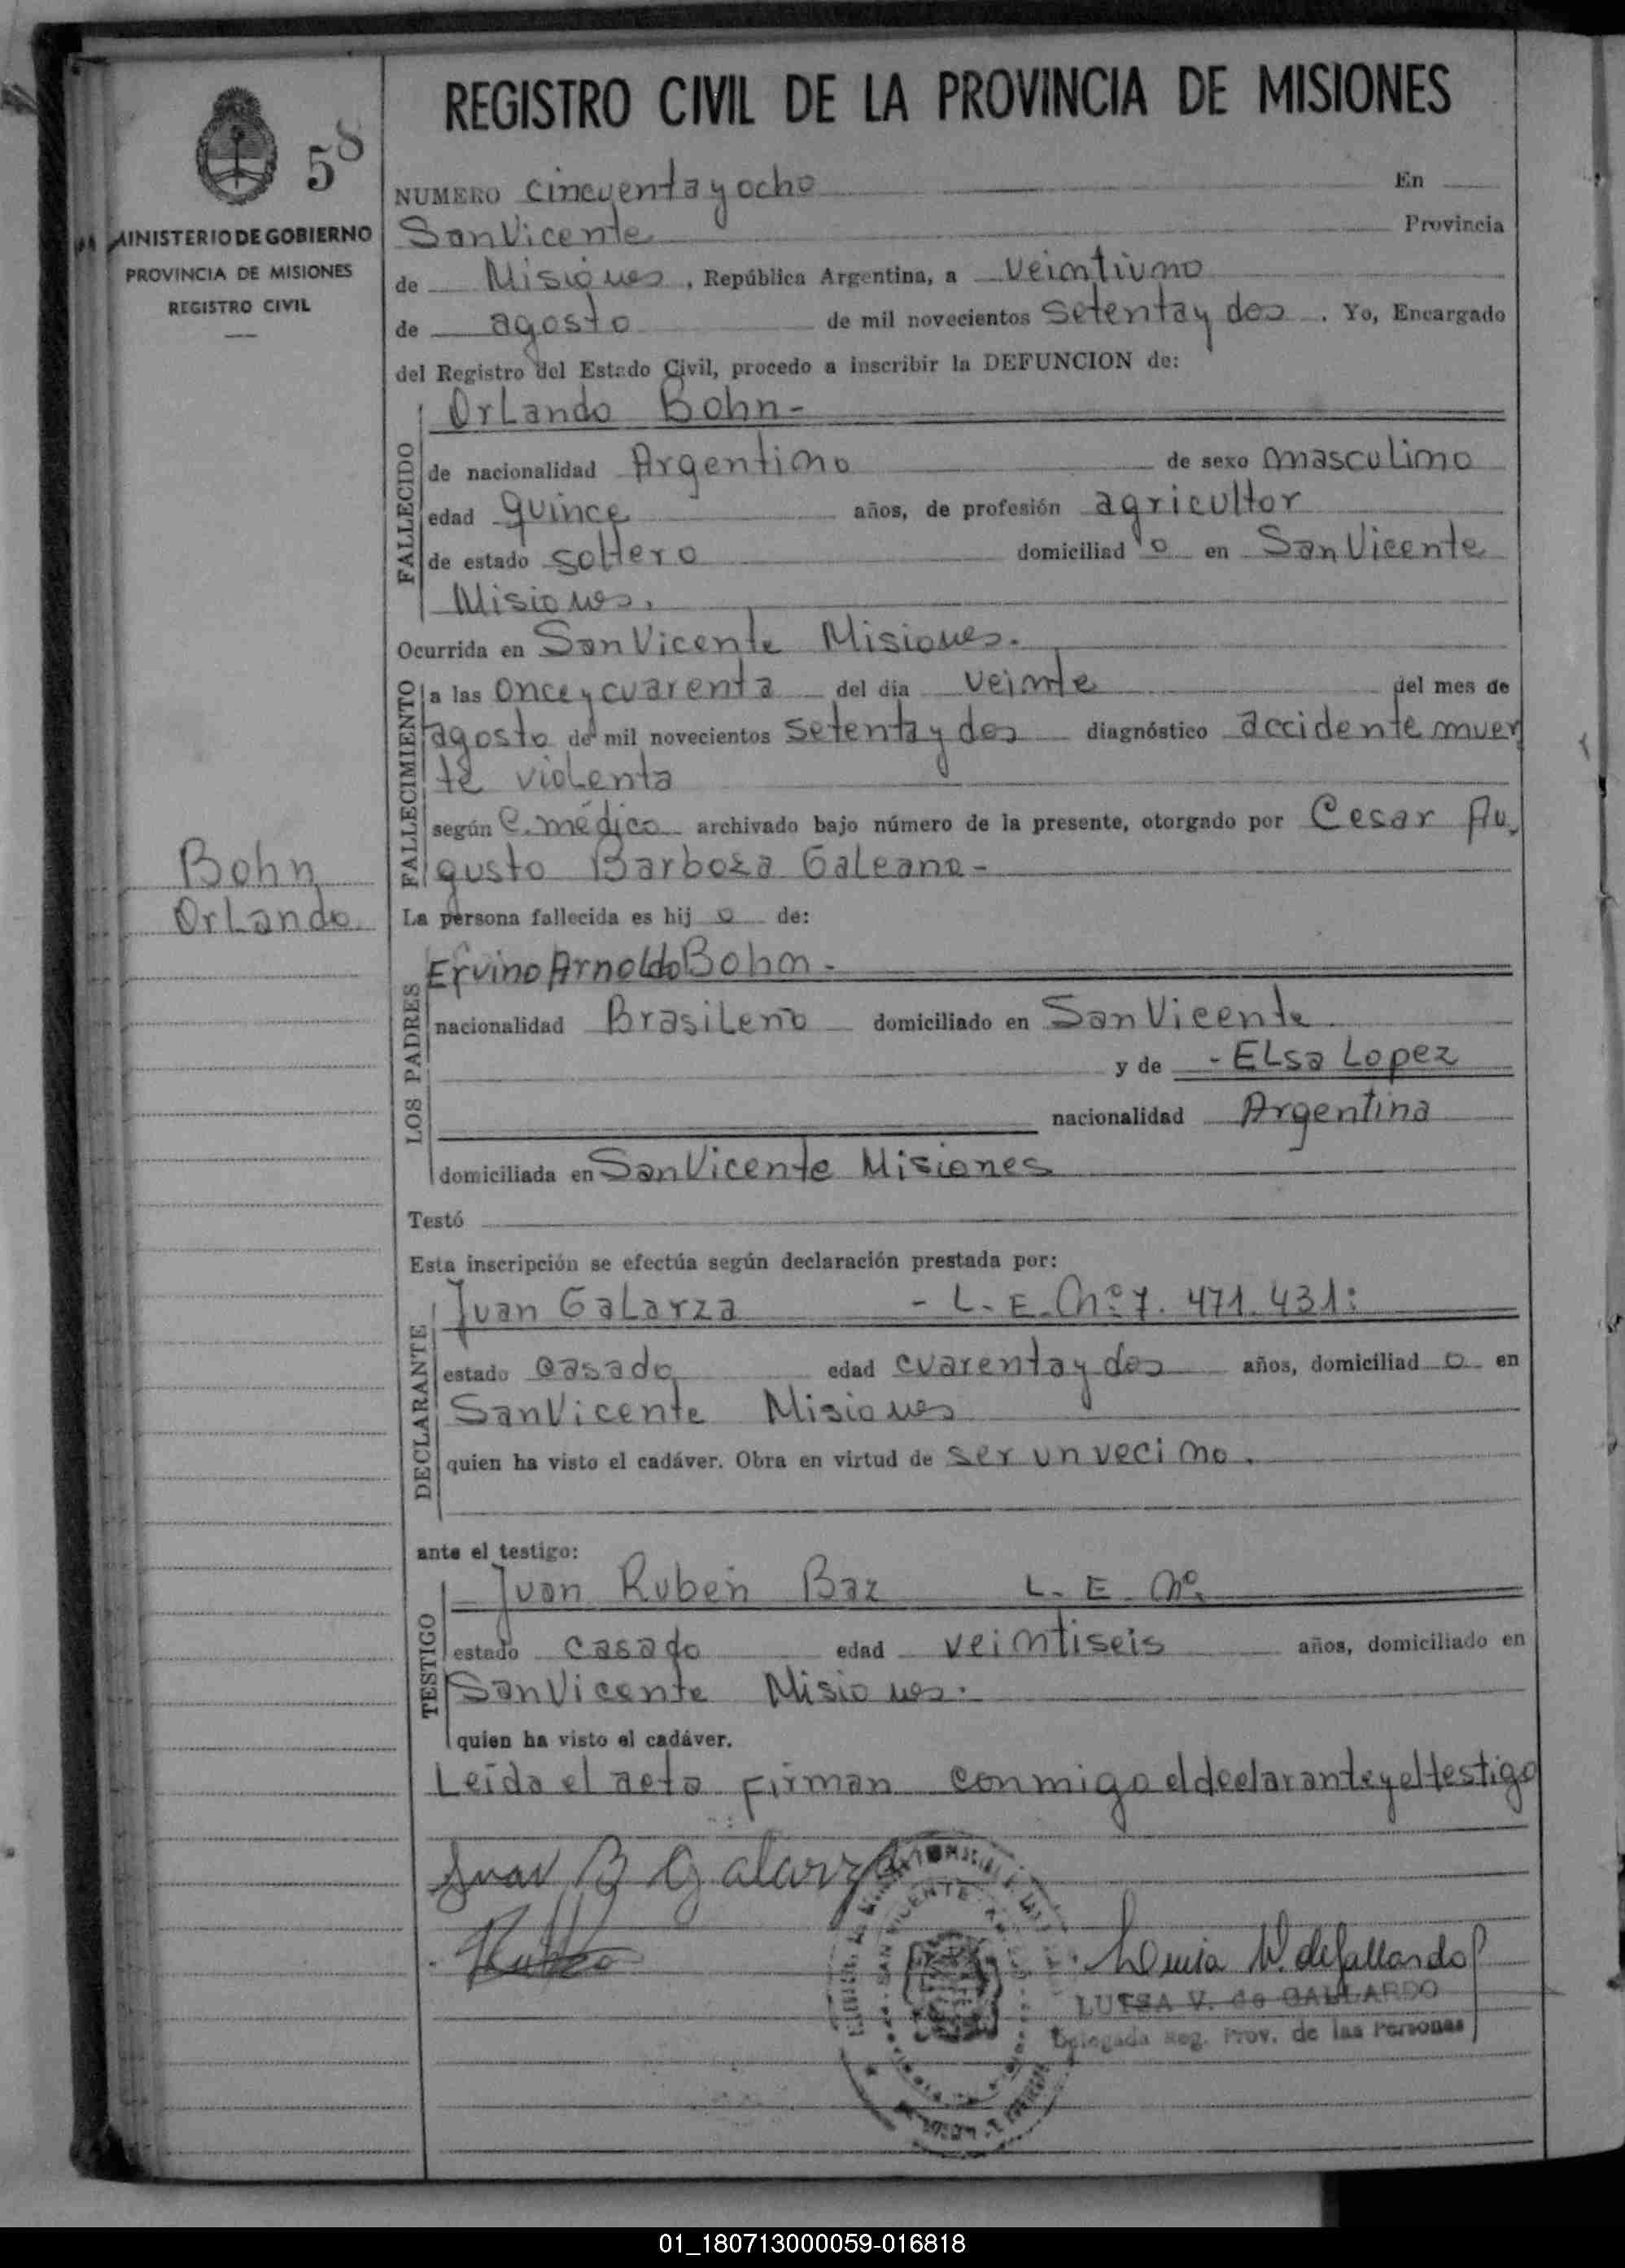 REGISTRO CIVIL DE LA PROVINCIA DE MISIONES
58
MINISTERIO DE GOBIERNO
PROVINCIA DE MISIONES
REGISTRO CIVIL
NUMERO cincuenta y ocho En
San Vicente Provincia
de Misiones, República Argentina, a veintiuno
de agosto de mil novecientos setenta y dos. Yo, Encargado
del Registro del Estado Civil, procedo a inscribir la DEFUNCION de:
FALLECIDO
Orlando Bohn-
de nacionalidad Argentino de sexo masculino
edad quince años, de profesión agricultor
de estado soltero domiciliado en San Vicente
Misiones.
Ocurrida en San Vicente Misiones.
FALLECIMIENTO
a las once y cuarenta del día veinte del mes de
agosto de mil novecientos setenta y dos diagnóstico accidente muer
te violenta
según C. médico archivado bajo número de la presente, otorgado por Cesar Au.
gusto Barboza Galeano-
Bohn
Orlando
La persona fallecida es hijo de:
LOS PADRES
Ervino Arnoldo Bohn-
nacionalidad Brasileño domiciliado en San Vicente
y de - Elsa Lopez
nacionalidad Argentina
domiciliada en San Vicente Misiones
Testó
Esta inscripción se efectúa según declaración prestada por:
DECLARANTE
Juan Galarza - L. E. Nº 7. 471. 431:
estado casado edad cuarenta y dos años, domiciliado en
San Vicente Misiones
quien ha visto el cadáver. Obra en virtud de ser un vecino.
ante el testigo:
TESTIGO
Juan Ruben Baz L. E. Nº
estado casado edad veintiseis años, domiciliado en
San Vicente Misiones.
quien ha visto el cadáver.
Leida el acta firman conmigo el declarante y el testigo
Juan B Galarza
SAN VICENTE
Luisa V. de Gallardo
LUISA V. de GALLARDO
Delegada Reg. Prov. de las Personas
01_180713000059-016818